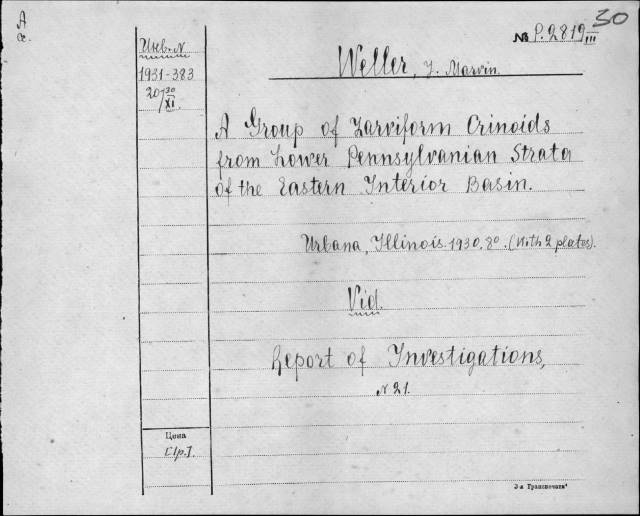 A
æ.
30
№ P.2819/III
Инв. N
1931-383
20 20/XI.
Weller, J. Marvin.
A Group of Larviform Crinoids
from Lower Pennsylvanian Strata
of the Eastern Interior Basin.
Urbana, Illinois. 1930. 8°. (With 2 plates).
Vid.
Report of Investigations,
N 21.
Цена
[1p.].
3-я Транспечать